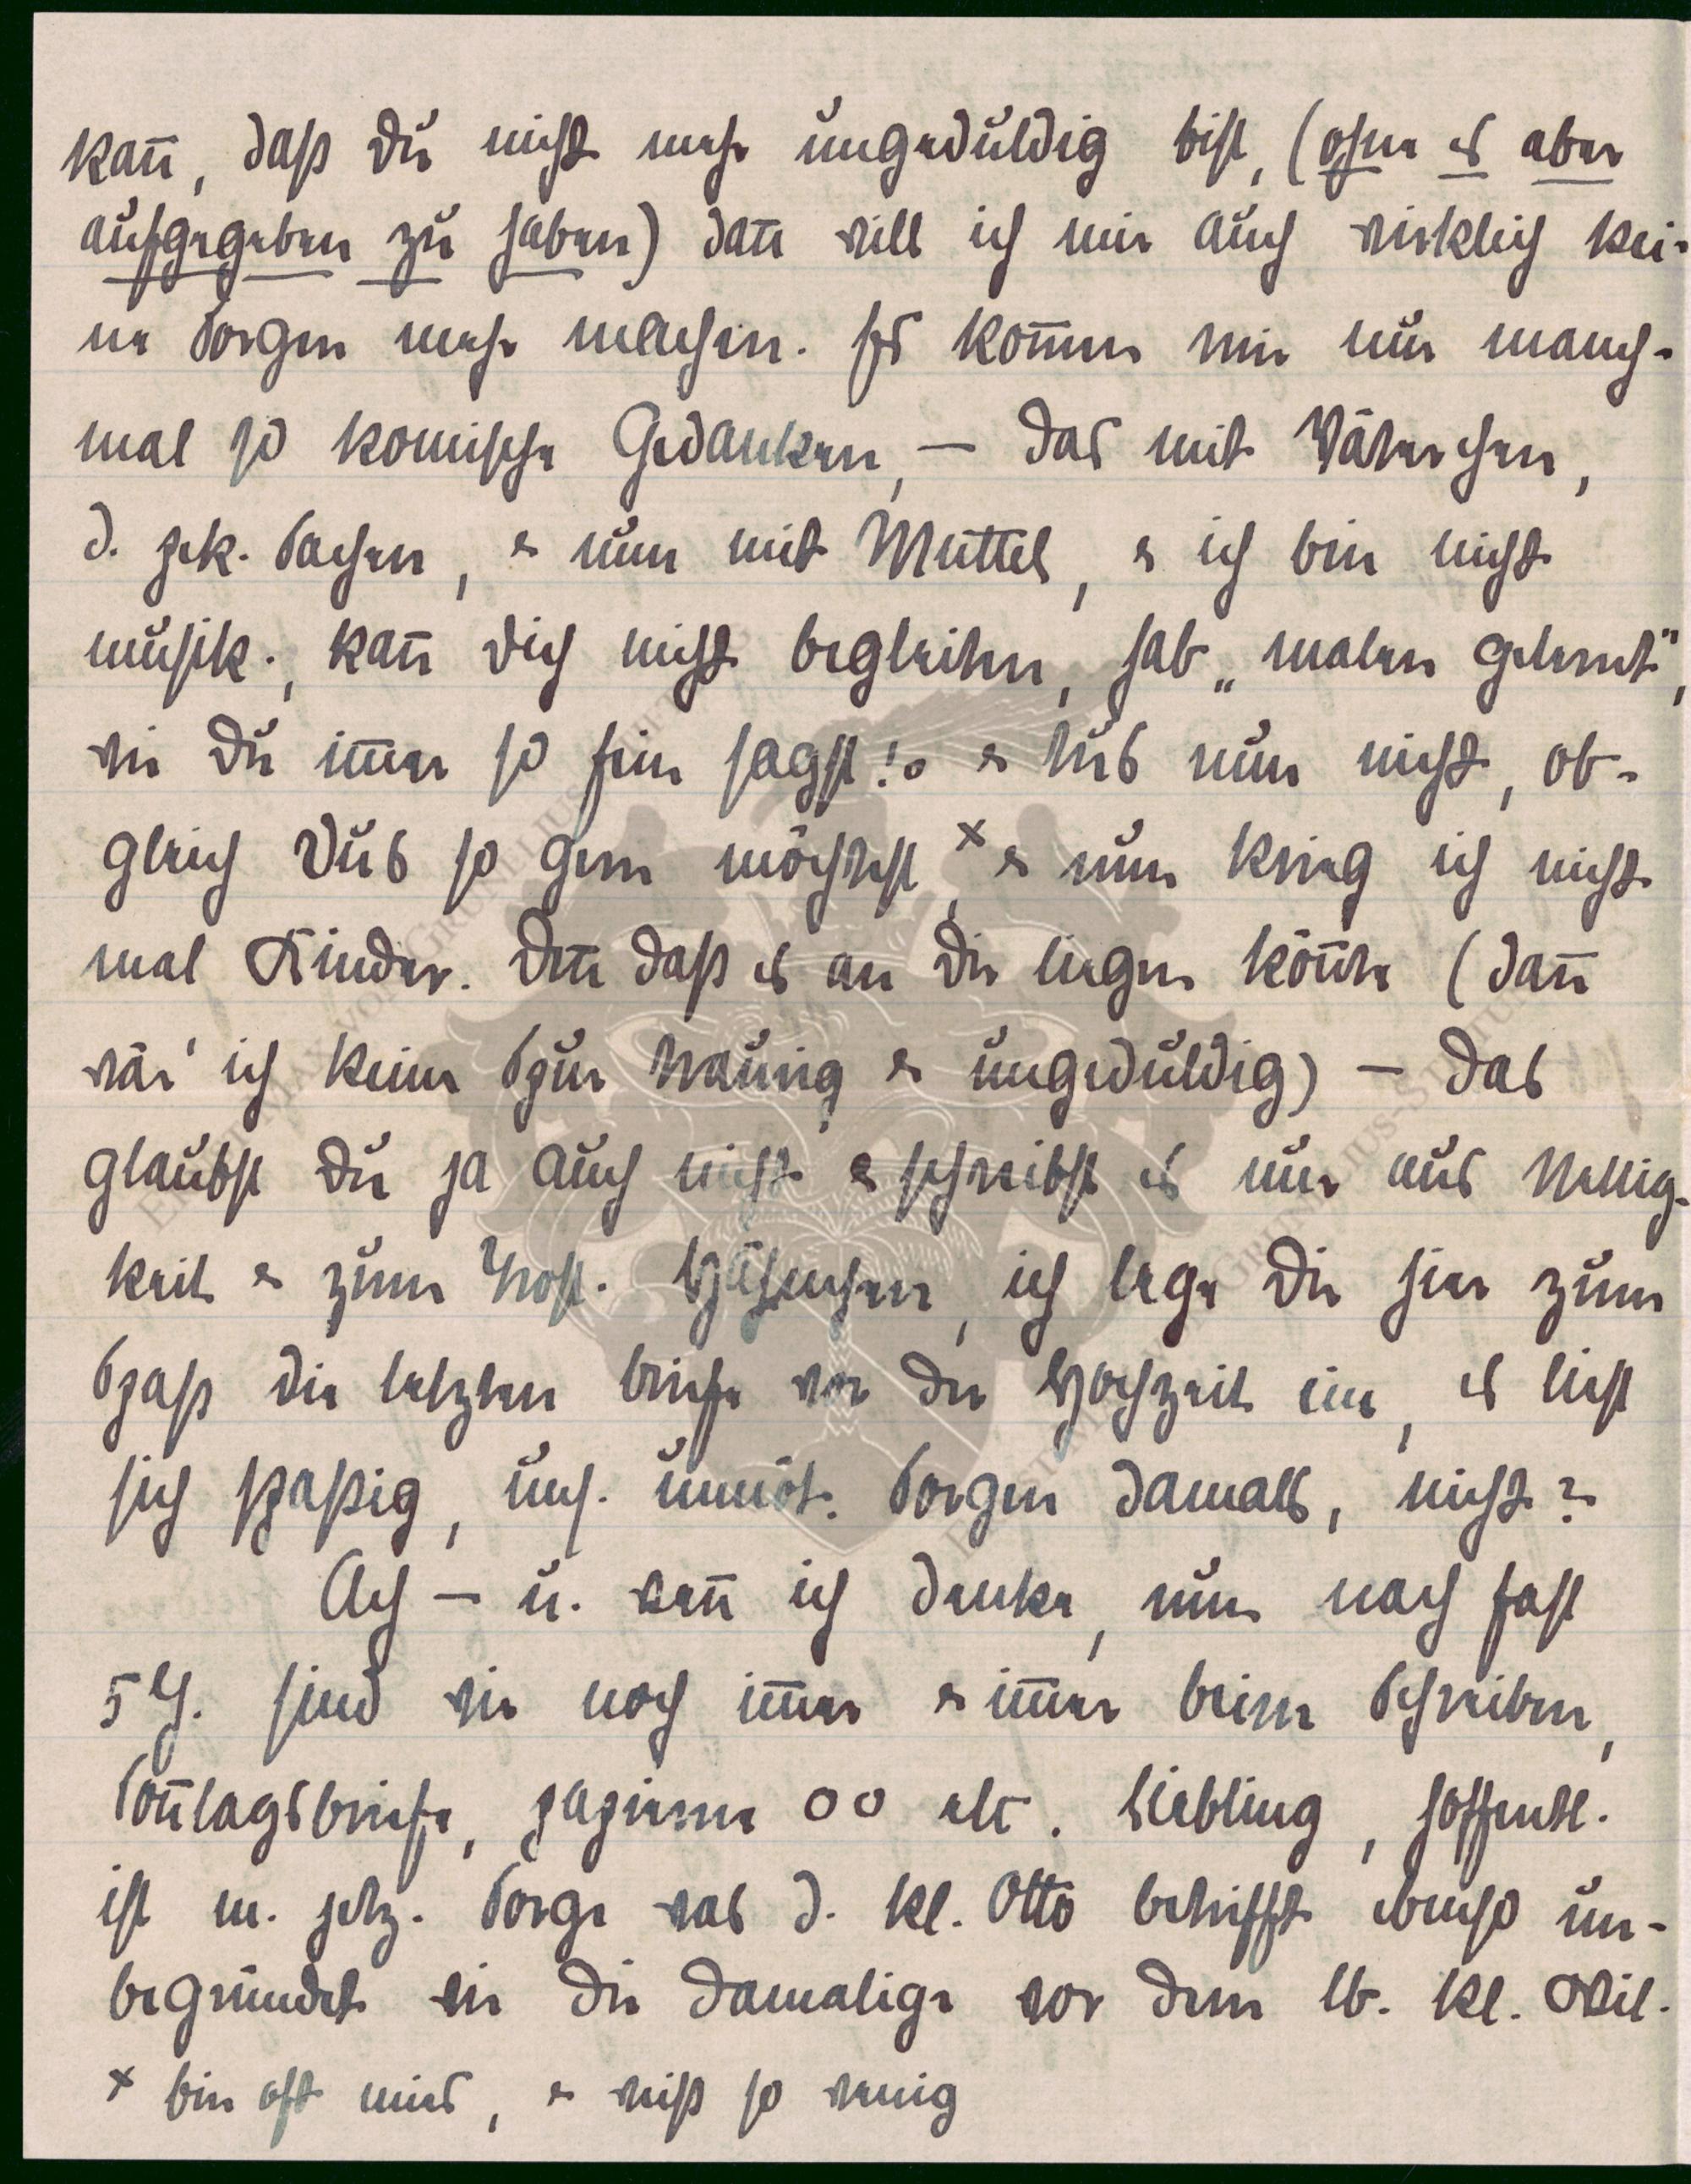 kan̄, daß Du nicht mehr ungeduldig bist, (ohne es aber
aufgegeben zu haben) dan̄ will ich mir auch wirklich kei-
ne Sorgen mehr machen. Es kom̄en mir nur manch-
mal so komische Gedanken, – das mit Väterchen,
d. gek. Sachen, & nun mit Muttel, & ich bin nicht
musik., kan̄ Dich nicht begleiten, hab „malen gelernt“,
wie Du im̄er so fein sagst! & tus nun nicht, ob-
gleich Dus so gern möchtest, x & nun krieg ich nicht
mal Kinder. Den̄ daß es an Dir liegen kön̄te (dan̄
wär' ich keine Spur traurig & ungeduldig) – das
glaubst Du ja auch nicht & schreibst es nur aus Nettig-
keit & zum Trost. Häschen, ich lege Dir hier zum
Spaß die letzten Briefe vor der Hochzeit ein, es liest
sich spaßig, uns. unnöt. Sorgen damals, nicht?
Ach – u. wen̄ ich denke, nun nach fast
5 J. sind wir noch im̄er & im̄er beim Schreiben,
Son̄tagsbriefe, papierne oo etc. Liebling, hoffentl.
ist m. jetz. Sorge was d. kl. Otto betrifft ebenso un-
begründet wie die damalige vor dem lb. kl. Wil.
x bin oft müd, & weiß so wenig